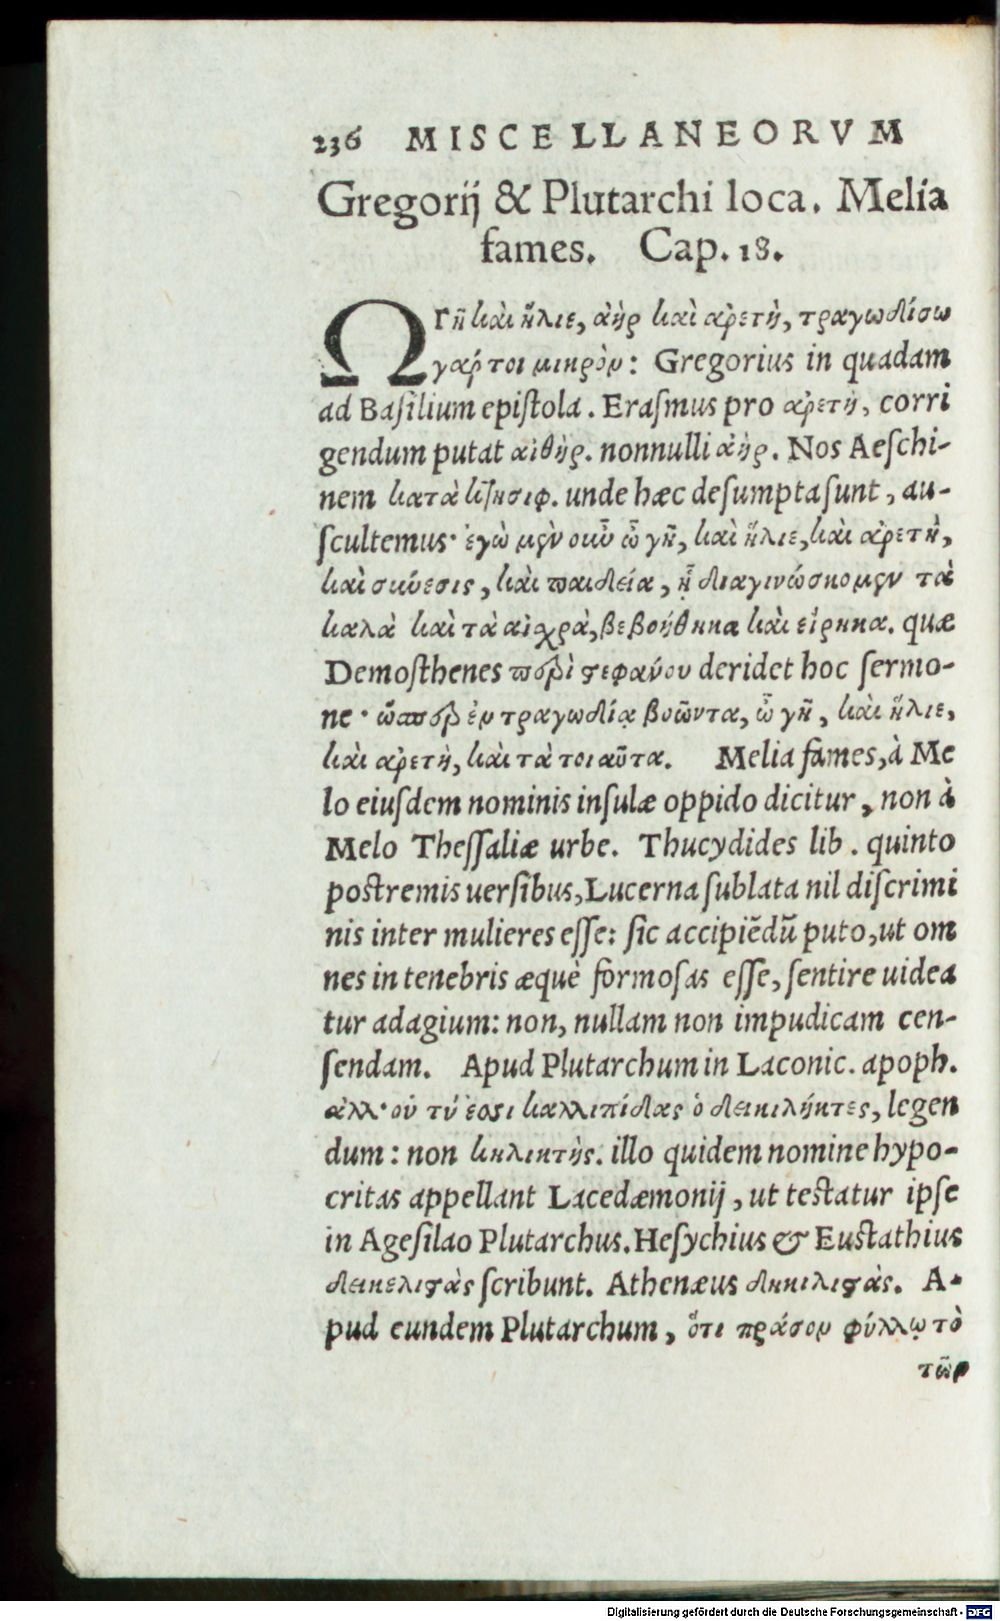 236 MISCELLANEORVM
Gregorij & Plutarchi loca. Melia
fames. Cap. 18.
Ω Γῆ καὶ ἥλιε, ἀὴρ καὶ ἀρετὴ, τραγωδίσω
γάρ τοι μικρὸν: Gregorius in quadam
ad Basilium epistola. Erasmus pro ἀρετὴ, corri
gendum putat αἰθὴρ. nonnulli ἀὴρ. Nos Aeschi-
nem κατὰ κτησιφ. unde hæc desumpta sunt, au-
scultemus· ἐγὼ μὲν οὖν ὦ γῆ, καὶ ἥλιε, καὶ ἀρετὴ,
καὶ σύνεσις, καὶ παιδεία, ᾗ διαγινώσκομεν τὰ
καλὰ καὶ τὰ αἰχρὰ, βεβοήθηκα καὶ εἴρηκα. quæ
Demosthenes περὶ στεφάνου deridet hoc sermo-
ne· ὥσπερ ἐν τραγωδίᾳ βοῶντα, ὦ γῆ, καὶ ἥλιε,
καὶ ἀρετὴ, καὶ τὰ τοιαῦτα. Melia fames, à Me
lo eiusdem nominis insulæ oppido dicitur, non à
Melo Thessaliæ urbe. Thucydides lib. quinto
postremis uersibus, Lucerna sublata nil discrimi
nis inter mulieres esse: sic accipiẽdũ puto, ut om
nes in tenebris æquè formosas esse, sentire uidea
tur adagium: non, nullam non impudicam cen-
sendam. Apud Plutarchum in Laconic. apoph.
ἀλλ' οὐ τύ ἐσσι καλλιπίδας ὁ δεικιλήκτες, legen
dum: non κηλικτὴς. illo quidem nomine hypo-
critas appellant Lacedæmonij, ut testatur ipse
in Agesilao Plutarchus. Hesychius & Eustathius
δεικελιστὰς scribunt. Athenæus δικηλιστάς. A-
pud eundem Plutarchum, ὅτι πράσου φύλλῳ τὸ
τῶν
Digitalisierung gefördert durch die Deutsche Forschungsgemeinschaft - DFG